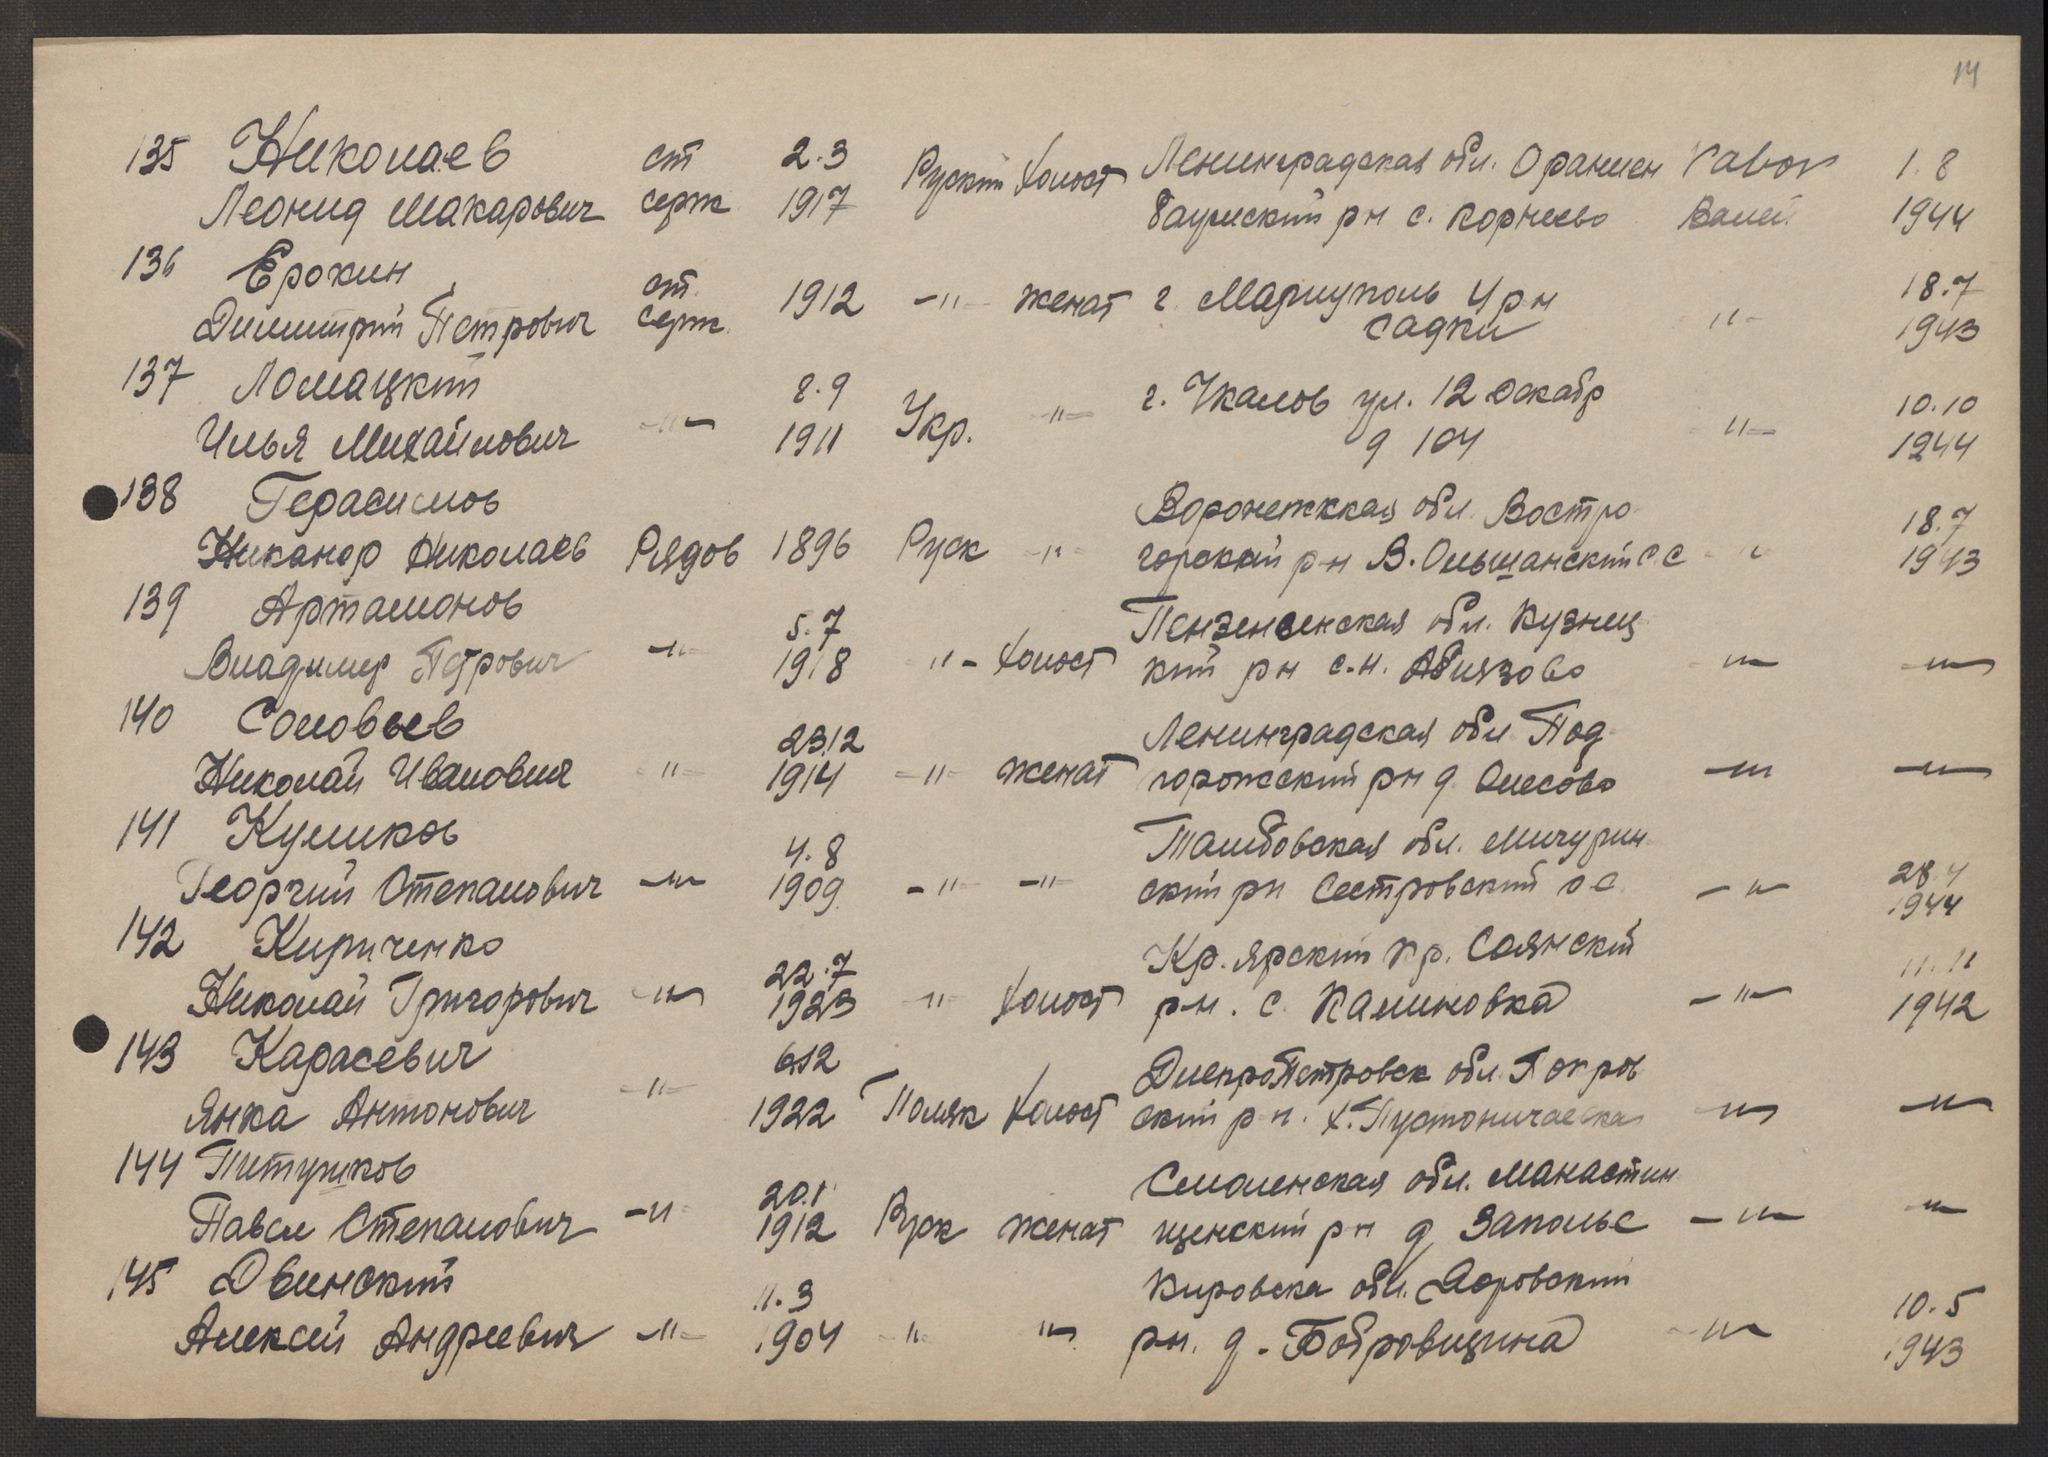 14
135 Николаев ст 2.3 Руский Холост Ленинградская обл. Ораниен 1.8
Леонид Макарович серж 1917 баумский рн с. Корнеево 1944
136 Ерохин ст. 1912 -"- женат г. Мариуполь 4 рн -"- 18.7
Димитрий Петрович серж. Садки 1943
137 Ломацкий 8.9 г. Чкалов ул. 12 Декабр 10.10
Илья Михайлович -"- 1911 Укр. -"- д 104 -"- 1944
138 Герасимов Воронежкая обл. Востро- 18.7
Никанор Николаев Рядов 1896 Руск -"- горский р-н В. Ольшанский с с -"- 1943
139 Артамонов 5.7 Пензененская обл. Кузнец-
Владимер Петрович -"- 1918 -"- Холост кий рн с.н. Абиязово -"- -"-
140 Соловьев 23.12 Ленинградская обл Под-
Николай Иванович -"- 1914 -"- женат горожский рн д. -"- -"-
141 Куликов 4.8 Тамбовская обл. Мичурин-
Георгий Степанович -"- 1909 -"- -"- ский рн Сестровский с с. -"- 28.4 1944
142 Кириченко 22.7 Кр. ярский кр. Саянский 11.11
Николай Григорович -"- 1923 -"- Холост р-н. с. Калиновка -"- 1942
143 Карасевич 6.12 ДнепроПетровск обл. Покров
Янка Антонович -"- 1922 Поляк Холост ский р-н. х. -"- -"-
144 Питушков 20.1 Смоленская обл. Манастин-
Павел Степанович -"- 1912 Руск женат щенский рн д Заполье -"- -"-
145 Двинский 11.3 Кировска обл. 10.5
Алексей Андреевич -"- 1904 -"- -"- рн. д. Бобровщина -"- 1943